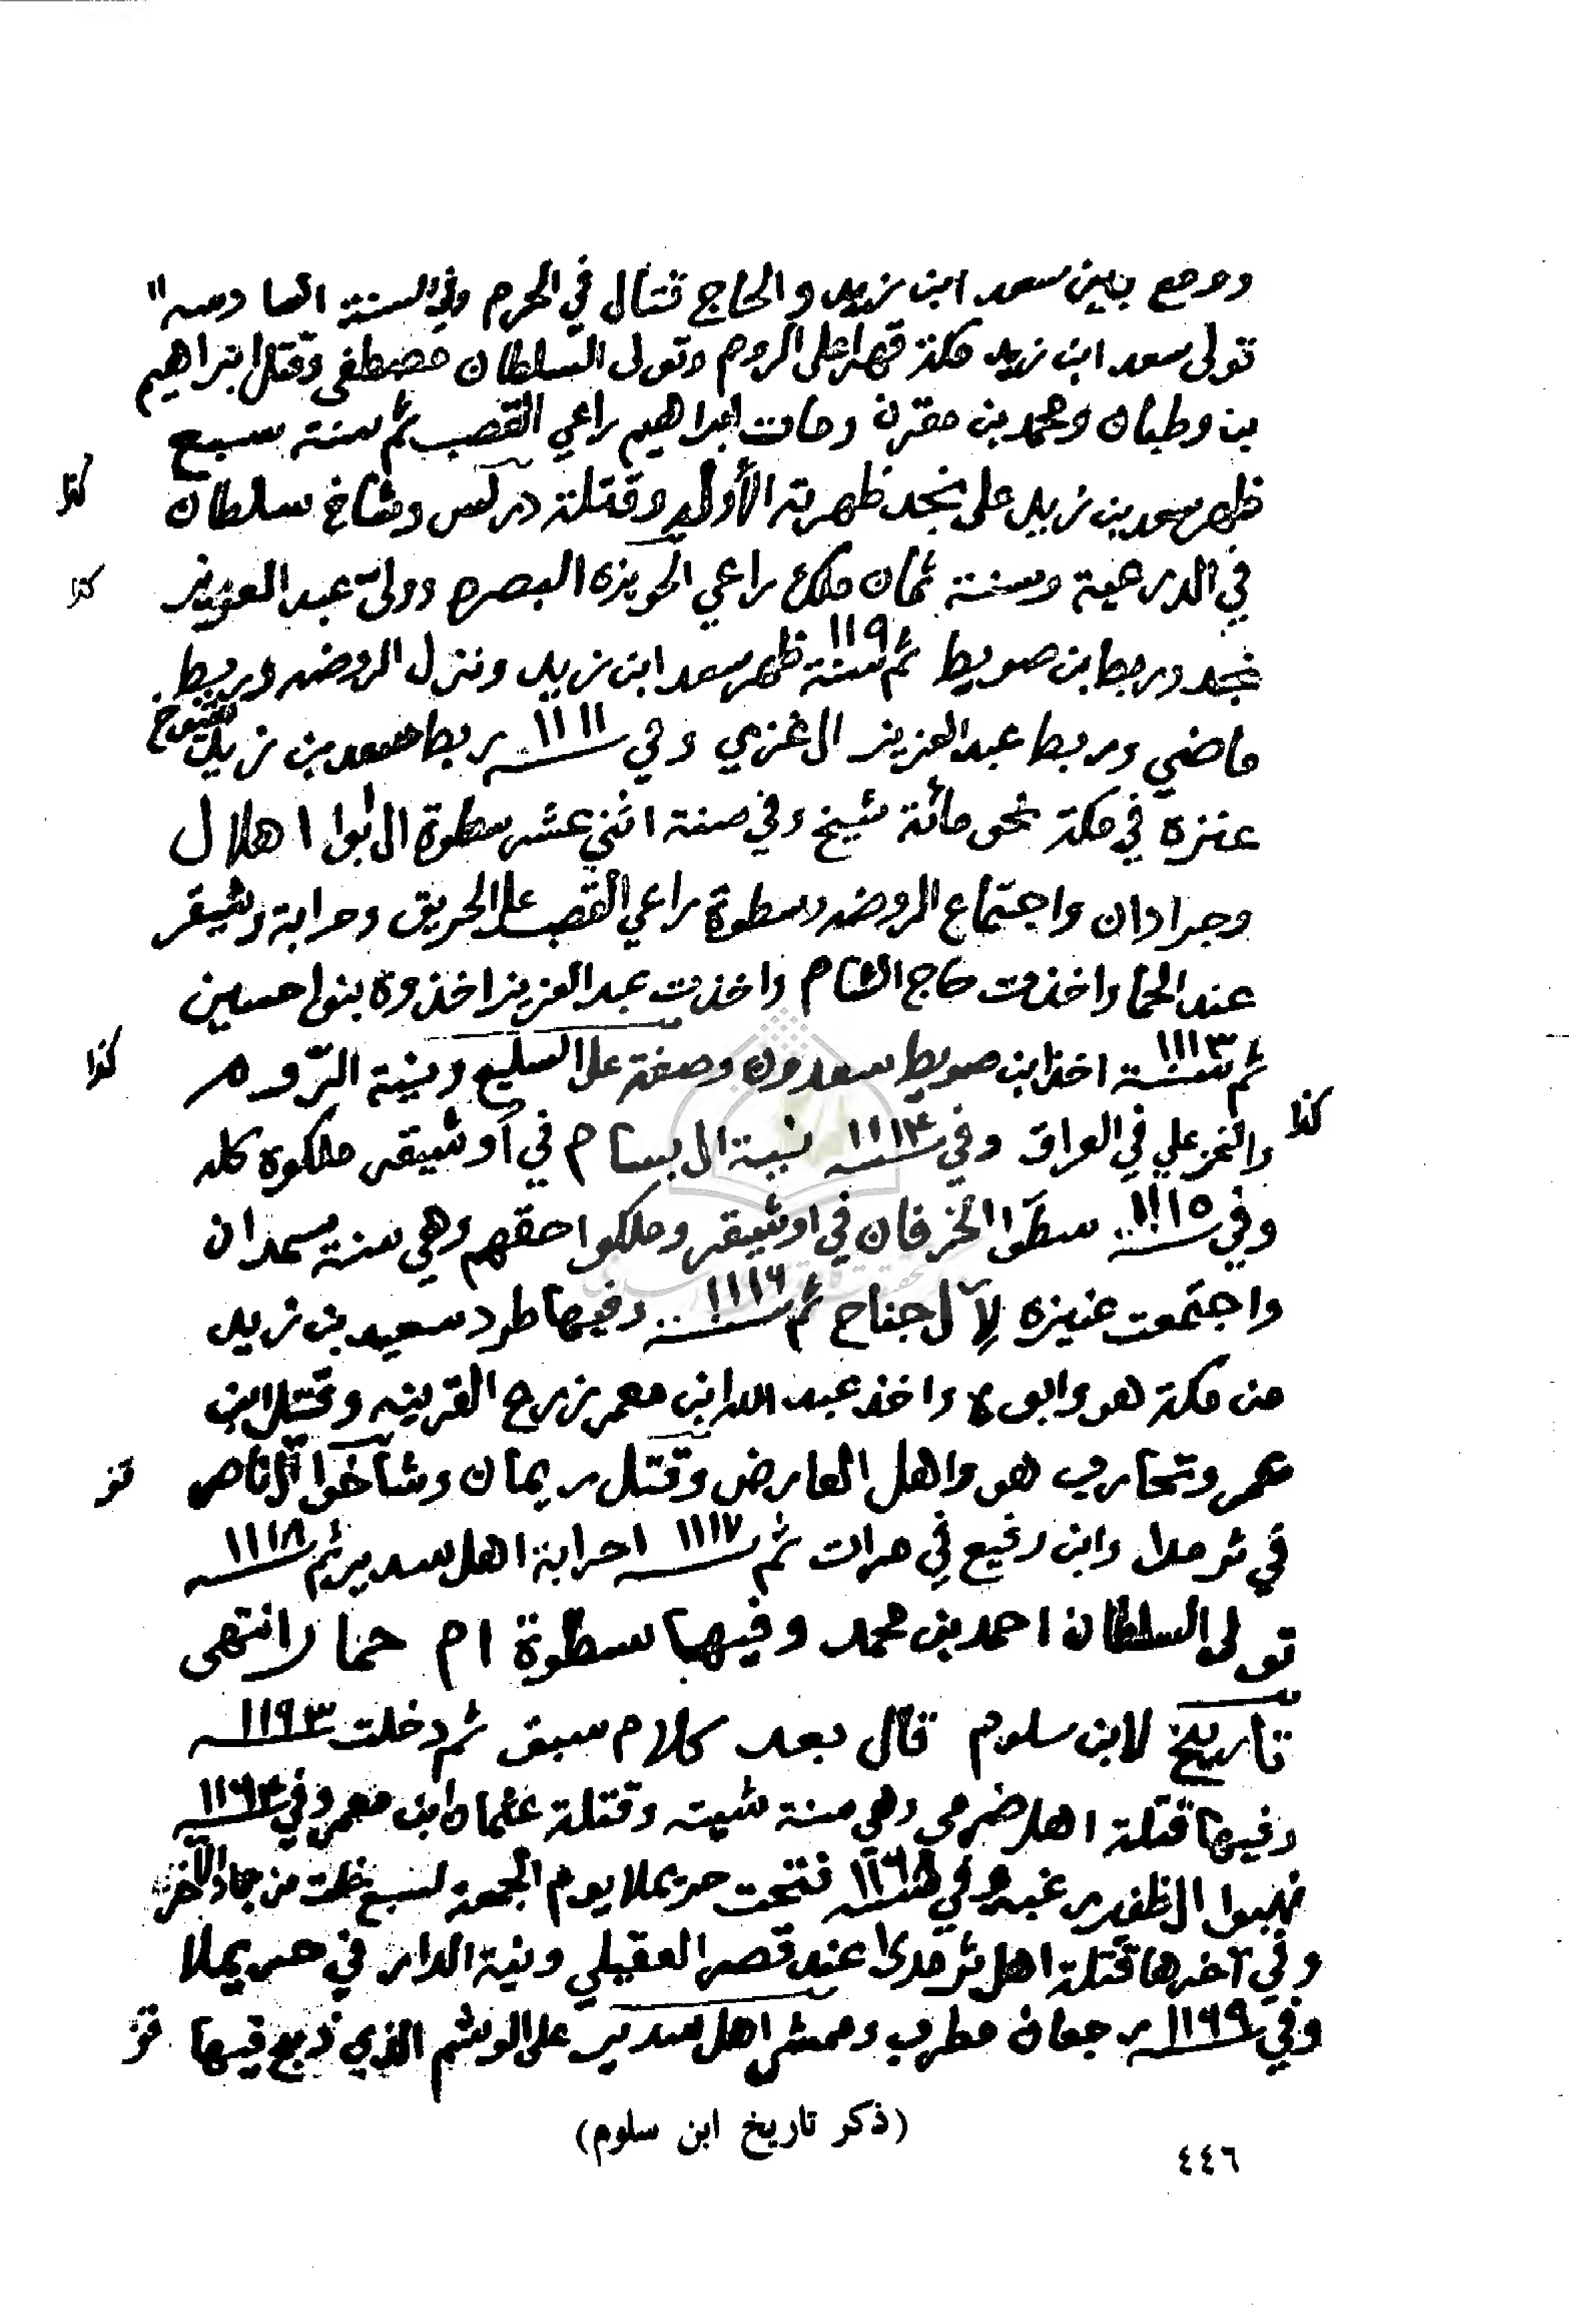 ووقع بين سعد ابن زيد والحاج قتال في الحرم وفي السنة السادسه
تولى سعد ابن زيد مكة قهرا على الروم وتولى السلطان مصطفى وقتل ابراهيم
بن وطبان ومحمد بن مقرن ومات ابراهيم راعي القصب ثم سنة سبع
ظهر سعد بن زيد على نجد ظهرته الأولى وقتلة دركس وشاخ سلطان
كذا
في الدرعية وسنة ثمان ملك راعي الحويزه البصره وولى عبد العزيز
كذا
نجد وربط ابن صويط ثم سنة ١١٩ ظهر سعد ابن زيد ونزل الروضه وربط
ماضي وربط عبد العزيز الغزي وفي ١١١١ ربط سعد بن زيد شيوخ
عنزه في مكة نحو مائة شيخ وفي سنة اثني عشر سطوة ال ابوا اهلال
وجرادان واجتماع الروضه وسطوة راعي القصب على الحريق وحرابة وشيقر
عند الحما واخذت حاج الشام واخذت عبد العزيز اخذوة بنوا حسين
ثم سنة ١١١٣ اخذ ابن صويط سعدون وصفة على السليع وبنية الروم
كذا
والخزعلي في العراق وفي ١١١٤ نية ال بسام في أوشيقر ملكوه كله
كذا
وفي ١١١٥ سطوا الخرفان في اوشيقر وملكوا حقهم وهي سنة سمدان
واجتمعت عنيزه لآل جناح ثم ١١١٦ وفيها طرد سعيد بن زيد
من مكة هو وابوه واخذ عبد الله ابن معمر زرع القرينه وقتل ابن
معمر وتحارب هو واهل العارض وقتل ريمان وشاخوا آل ناصر
في ثرمدا وابن رفيع في مرات ثم ١١١٧ احرابة اهل سدير ثم ١١١٨
تولى السلطان احمد بن محمد وفيها سطوة ام حمار انتهى
تاريخ لابن سلوم قال بعد كلام سبق ثم دخلت ١١٩٣
وفيها قتلة اهل ضرمى وهي سنة شيته وقتلة عثمان ابن معمر وفي ١١٦٤
نهبوا الظفير غبيه وفي ١١٦٨ فتحت حريملا يوم الجمعة لسبع خلت من جماد الآخر
وفي آخرها قتلة اهل ثرمدا عند قصر العقيلي وبنية الدار في حريملا
وفي ١١٦٩ رجعان مطرب وممشى اهل سدير على الوشم الذي ذبح فيها
(ذكر تاريخ ابن سلوم)
٤٤٦